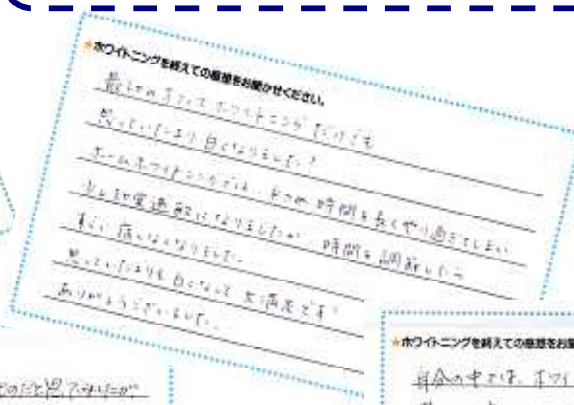 ★ホワイトニングを終えての感想をお聞かせください。
最初のオフィスホワイトニングだけでも
思っていたより白くなりました!
ホームホワイトニングでは、 時間を長くやり過ぎてしまい
少し知覚過敏になりましたが 時間を調節したら
すぐに痛くなくなりました。
思っていたよりも白くなって大満足です!
ありがとうございました。
★ホワイトニングを終えての感想をお
自分の中では、ホワイ